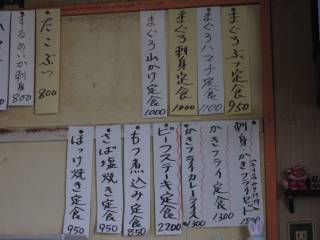 まぐろぶつ定食 950
まぐろハマチ定食 1100
まぐろ刺身定食 1000
まぐろ山かけ定食 1000
たこぶつ 800
するめいか刺身 800
刺身・かきフライセット
かきフライ定食 1300
かきフライカレーライス 1300
ビーフステーキ定食 2200
もつ煮込み定食 850
さば塩焼き定食 950
ほっけ焼き定食 950